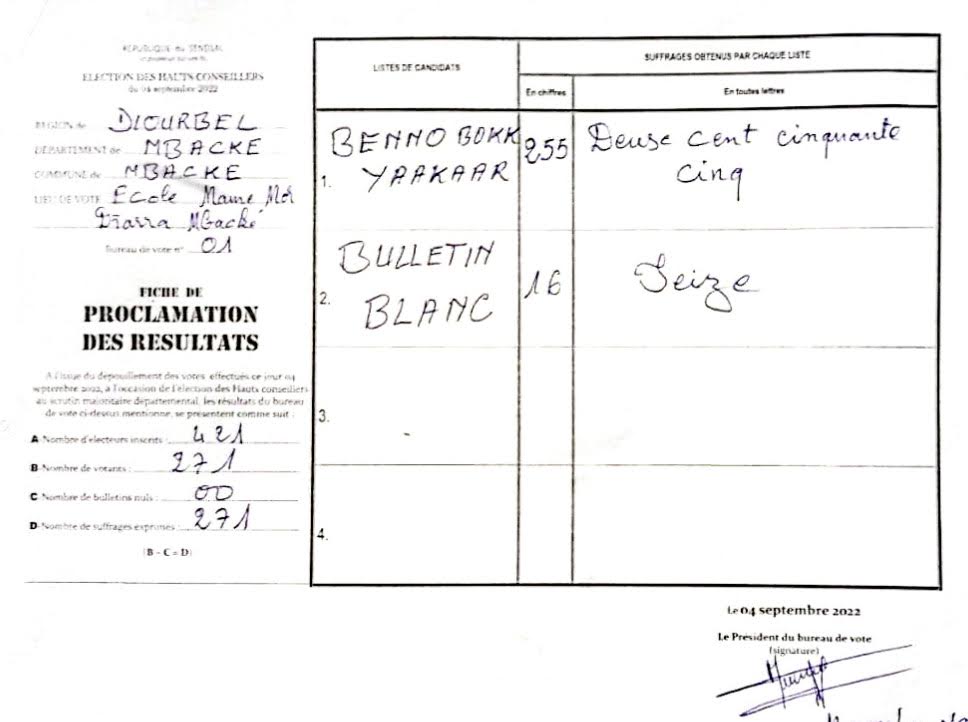 REPUBLIQUE du SENEGAL
ELECTION DES HAUTS CONSEILLERS
du 04 septembre 2022
REGION de DIOURBEL
DÉPARTEMENT de MBACKE
COMMUNE de MBACKE
LIEU DE VOTE Ecole Mame Mor
Diarra Mbacké
Bureau de vote n° 01
FICHE DE
PROCLAMATION
DES RESULTATS
A l'issue du dépouillement des votes effectués ce jour 04
septembre 2022, à l'occasion de l'élection des Hauts conseillers
au scrutin majoritaire départemental, les résultats du bureau
de vote ci-dessus mentionné, se présentent comme suit :
A Nombre d'électeurs inscrits : 421
B-Nombre de votants : 271
C Nombre de bulletins nuls : 00
D-Nombre de suffrages exprimés : 271
(B - C = D)
LISTES DE CANDIDATS
SUFFRAGES OBTENUS PAR CHAQUE LISTE
En chiffres
En toutes lettres
1. BENNO BOKK
YAAKAAR
255
Deuse cent cinquante
cinq
2. BULLETIN
BLANC
16
Seize
3.
4.
Le 04 septembre 2022
Le Président du bureau de vote
(signature)